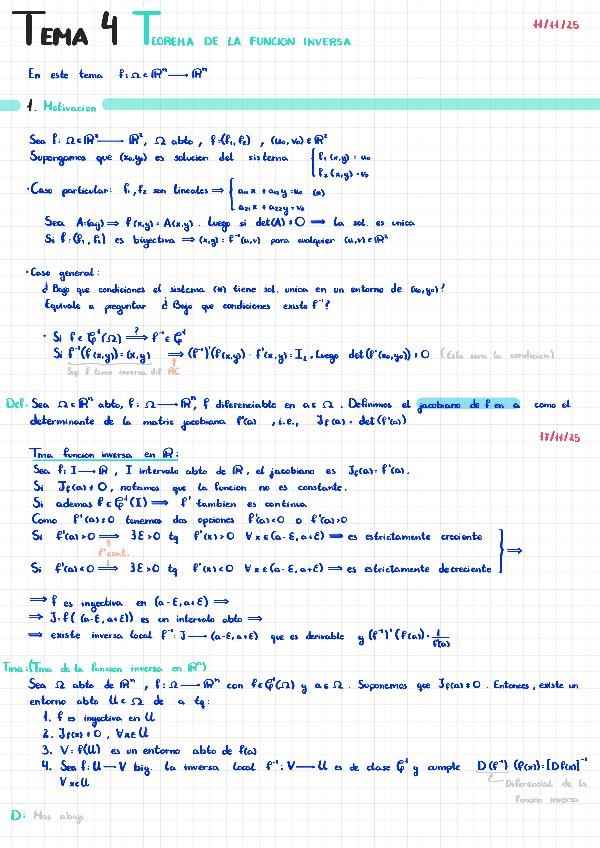 TEMA 4 TEOREMA DE LA FUNCION INVERSA 11/11/25
En este tema f: Ω⊂ℝⁿ ⟶ ℝⁿ
1. Motivacion
Sea f: Ω⊂ℝ² ⟶ ℝ², Ω abto, f=(f₁, f₂) , (u₀, v₀) ∈ ℝ²
Supongamos que (x₀,y₀) es solucion del sistema { f₁(x,y) = u₀
f₂(x,y) = v₀
· Caso particular: f₁, f₂ son lineales ⟹ { a₁₁x + a₁₂y = u₀ (*)
a₂₁x + a₂₂y = v₀
Sea A=(aij) ⟹ f(x,y) = A(x,y). Luego si det(A) ≠ 0 ⟹ la sol. es unica
Si f=(f₁, f₂) es biyectiva ⟹ (x,y) = f⁻¹(u,v) para cualquier (u,v) ∈ ℝ²
· Caso general:
¿ Bajo que condiciones el sistema (*) tiene sol. unica en un entorno de (x₀,y₀)?
Equivale a preguntar ¿ Bajo que condiciones existe f⁻¹?
· Si f ∈ 𝒞¹(Ω) ⟹? f⁻¹ ∈ 𝒞¹
Si f⁻¹(f(x,y)) = (x,y) ⟹ (f⁻¹)'(f(x,y)) · f'(x,y) = I₂. Luego det(f'(x₀,y₀)) ≠ 0 (Esta sera la condicion)
Sup f tiene inversa dif RC
Def: Sea Ω⊂ℝⁿ abto, f: Ω ⟶ ℝⁿ, f diferenciable en a∈Ω. Definimos el jacobiano de f en a como el
determinante de la matriz jacobiana f'(a) , i.e., Jf(a) = det(f'(a))
17/11/25
Tma funcion inversa en ℝ:
Sea f: I ⟶ ℝ , I intervalo abto de ℝ, el jacobiano es Jf(a) = f'(a).
Si Jf(a) ≠ 0, notamos que la funcion no es constante.
Si ademas f ∈ 𝒞¹(I) ⟹ f' tambien es continua
Como f'(a) ≠ 0 tenemos dos opciones f'(a) < 0 o f'(a) > 0
Si f'(a) > 0 ⟹ ∃ε > 0 tq f'(x) > 0 ∀x∈(a-ε, a+ε) ⟹ es estrictamente creciente } ⟹
f' cont.
Si f'(a) < 0 ⟹ ∃ε > 0 tq f'(x) < 0 ∀x∈(a-ε, a+ε) ⟹ es estrictamente decreciente
⟹ f es inyectiva en (a-ε, a+ε) ⟹
⟹ J = f((a-ε, a+ε)) es un intervalo abto ⟹
⟹ existe inversa local f⁻¹: J ⟶ (a-ε, a+ε) que es derivable y (f⁻¹)'(f(a)) = 1/f'(a)
Tma:(Tma de la funcion inversa en ℝⁿ)
Sea Ω abto de ℝⁿ, f: Ω ⟶ ℝⁿ con f∈𝒞¹(Ω) y a∈Ω. Suponemos que Jf(a) ≠ 0. Entonces, existe un
entorno abto U⊂Ω de a tq:
1. f es inyectiva en U
2. Jf(x) ≠ 0, ∀x∈U
3. V = f(U) es un entorno abto de f(a)
4. Sea f: U ⟶ V biy. la inversa local f⁻¹: V ⟶ U es de clase 𝒞¹ y cumple D(f⁻¹)(f(x)) = [Df(x)]⁻¹
∀x∈U
Diferencial de la
funcion inversa
D: Mas abajo